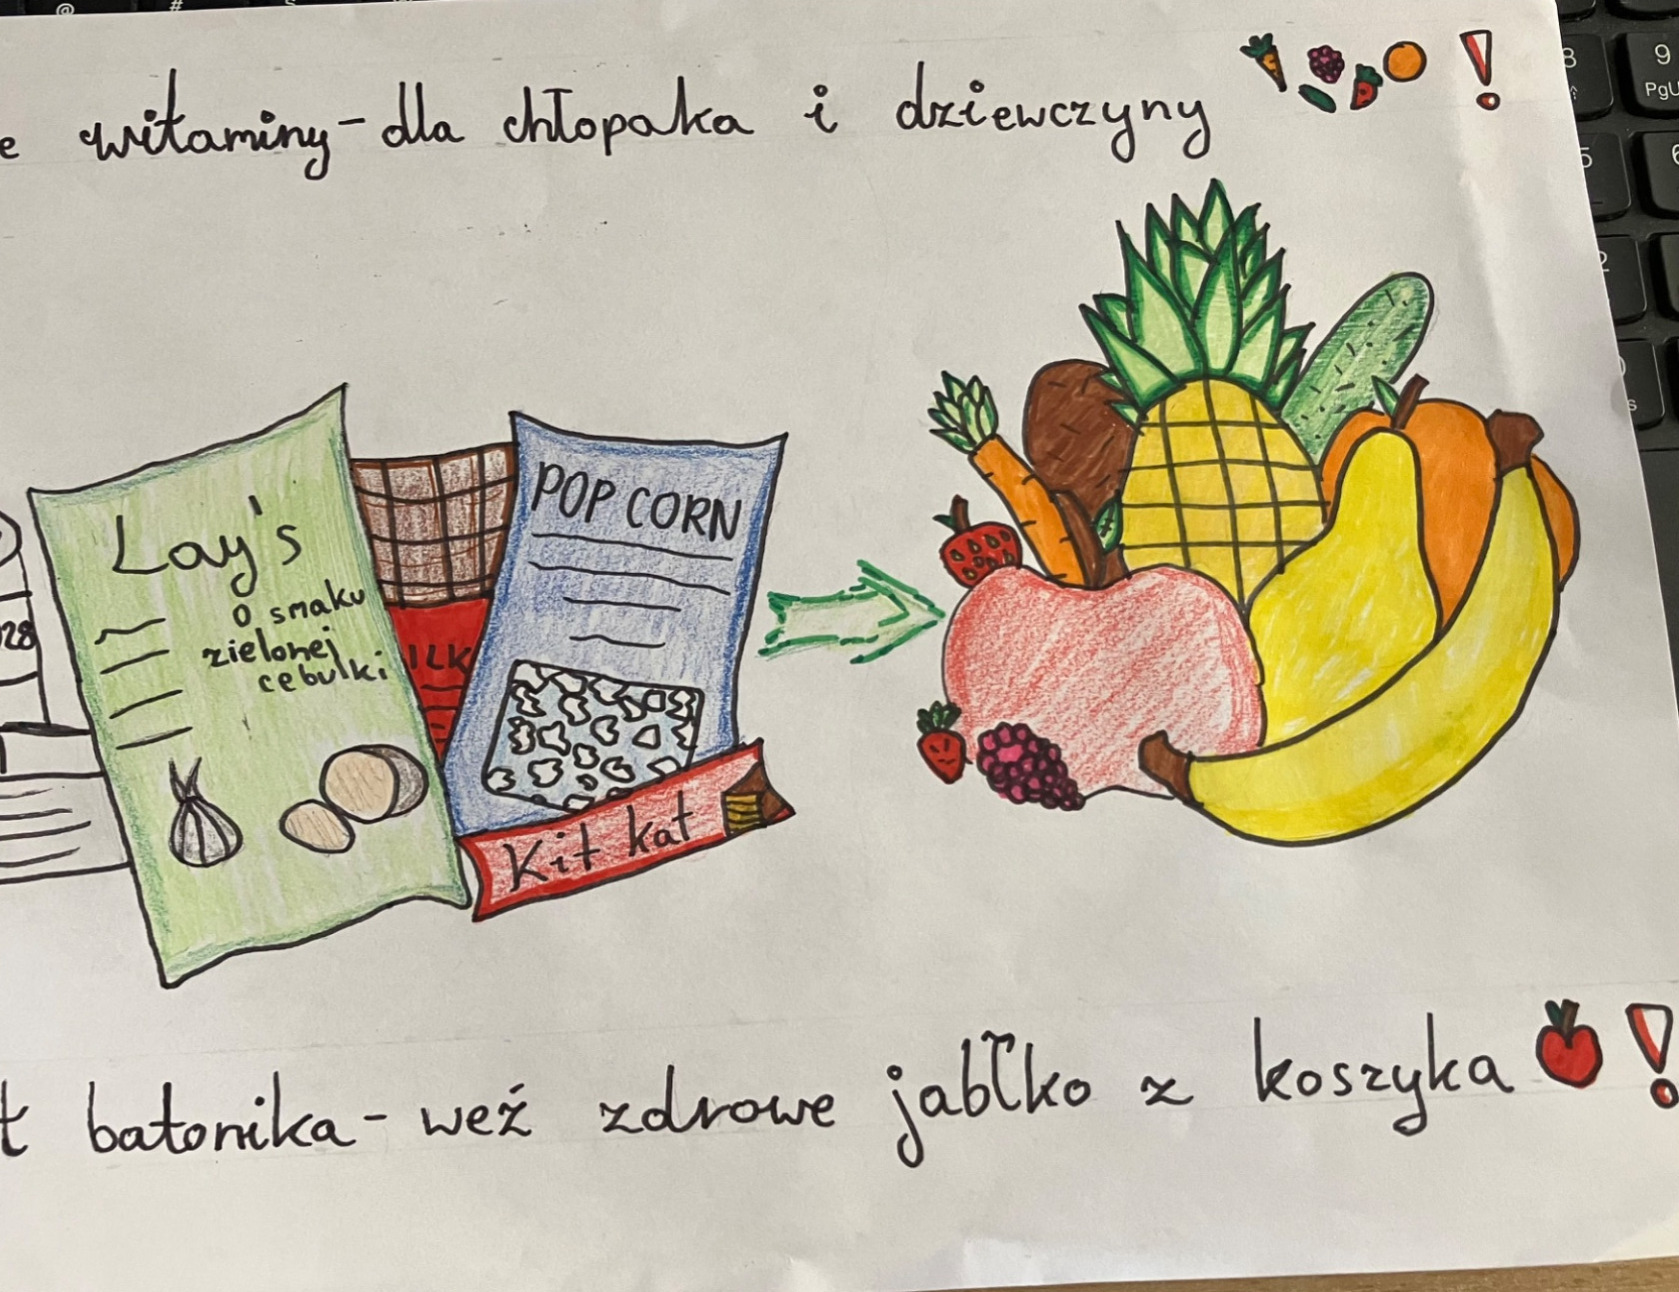 e witaminy - dla chłopaka i dziewczyny !
Lay's
O smaku
zielonej
cebulki
ILK
POP CORN
Kit kat
28
t batonika - weź zdrowe jabłko z koszyka !
@
#
8
9
PgU
5
6
2